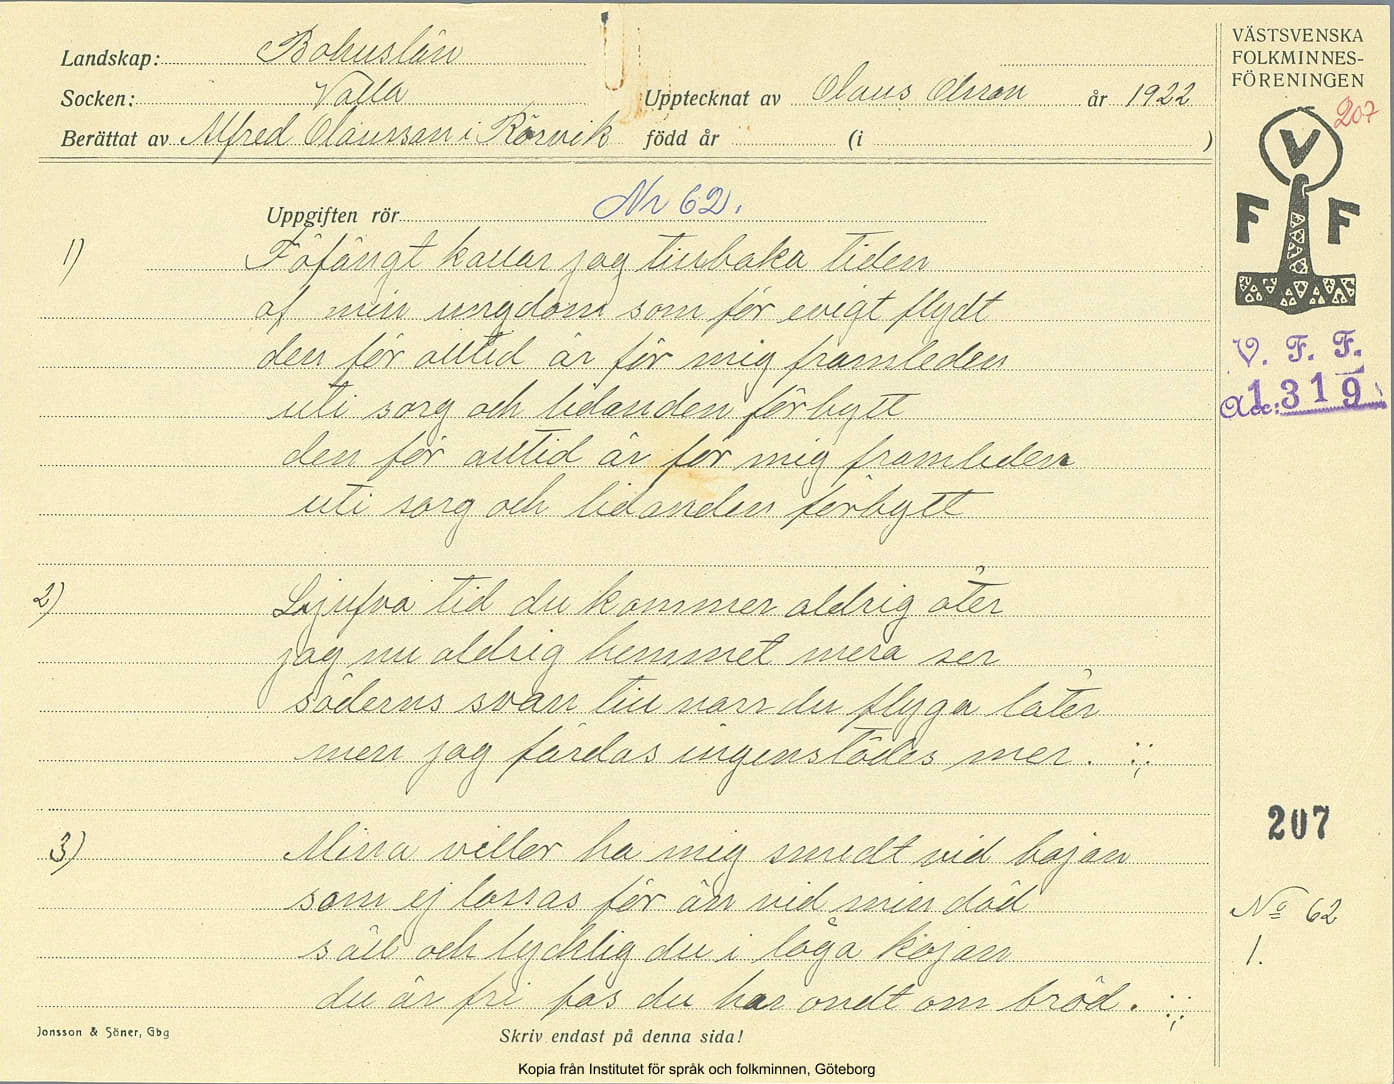 Landskap: Bohuslän
Socken: Valla
Upptecknat av Olaus Olsson år 1922
Berättat av Alfred Olausson i Rörvik född år (i )
VÄSTSVENSKA
FOLKMINNES-
FÖRENINGEN
207
V
F F
V. F. F.
Acc: 1319
Uppgiften rör Nr 62.
1) Föfängt kallar jag tillbaka tiden
af min ungdom som för evigt flydt
den för alltid är för mig framleden
uti sorg och lidanden förbytt
den för alltid är för mig framliden
uti sorg och lidanden förbytt
2) Ljufva tid du kommer aldrig åter
jag nu aldrig hemmet mera ser
söderns svan till norr du flyga låter
men jag färdas ingenstädes mer. :;
3) Mina villor ha mig smidt vid bojan
som ej lossas för än vid min död
säll och lycklig du i låga kojan
du är fri fas du har ondt om bröd. :;
207
No 62
1.
Jonsson & Söner, Gbg
Skriv endast på denna sida!
Kopia från Institutet för språk och folkminnen, Göteborg